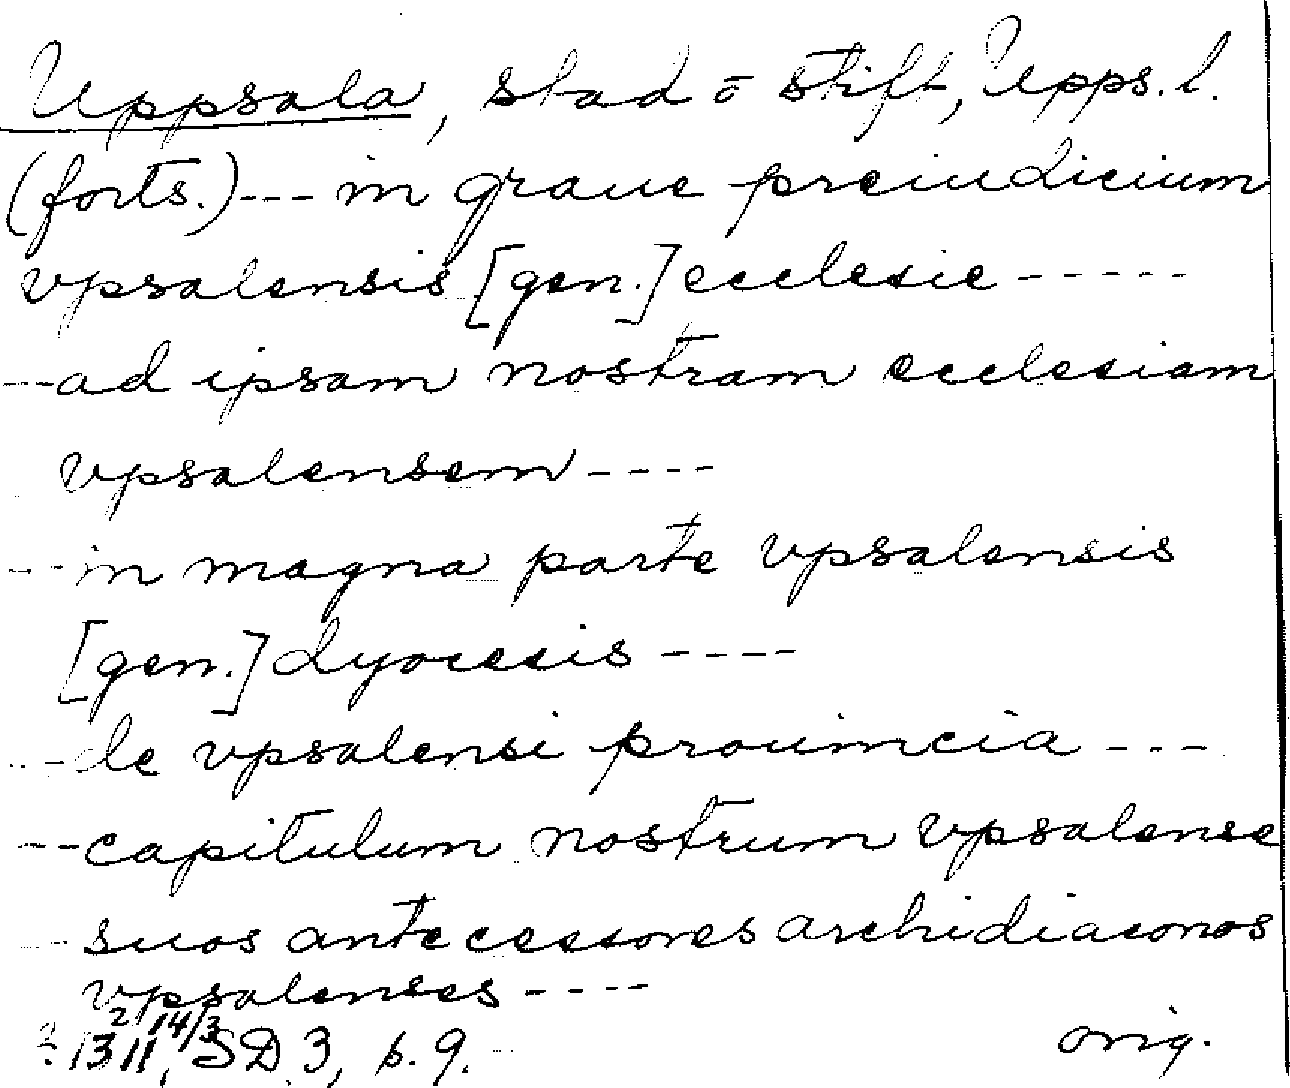 Uppsala, stad o stift, Upps. l.
(forts.) --- in graue preiudicium
vpsalensis [gen.] ecclesie -----
--- ad ipsam nostram ecclesiam
vpsalensem ----
--- in magna parte vpsalensis
[gen.] dyocesis ----
--- de vpsalensi prouincia ---
--- capitulum nostrum vpsalense
--- suos antecessores archidiaconos
vpsalenses ----
1311 14/3, SD 3, s. 9.
orig.